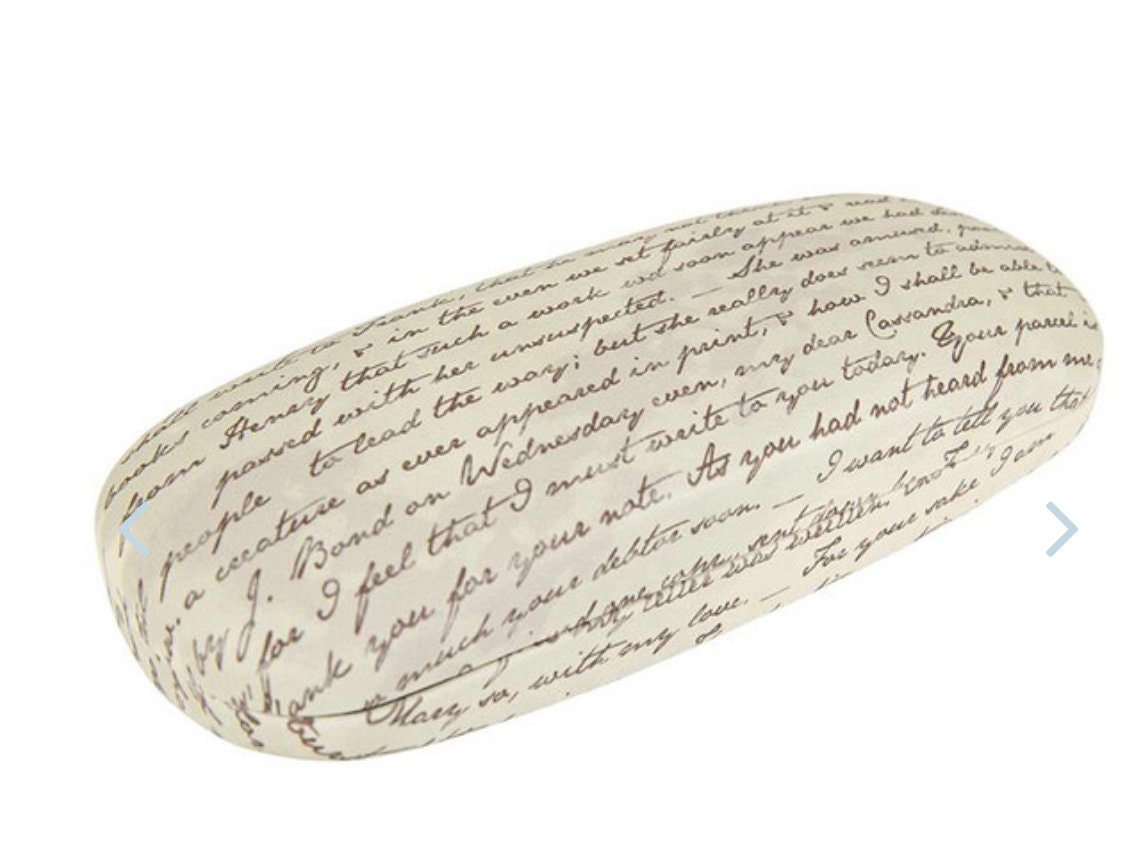 Frank, that he may not
books coming, & in the even we set fairly at it & read
from Henry that such a work wd soon appear we had
passed with her unsuspected. — She was amused, poor
people to lead the way; but she really does seem to admire
a creature as ever appeared in print, & how I shall be able
by J. Bond on Wednesday even, my dear Cassandra, & that
for I feel that I must write to you today. Your parcel is
ank you for your note. As you had not heard from me
o much your debtor soon. — I want to tell you that
one copy sent down
my letter was written.
Mary so, with my love. — For your sake I am